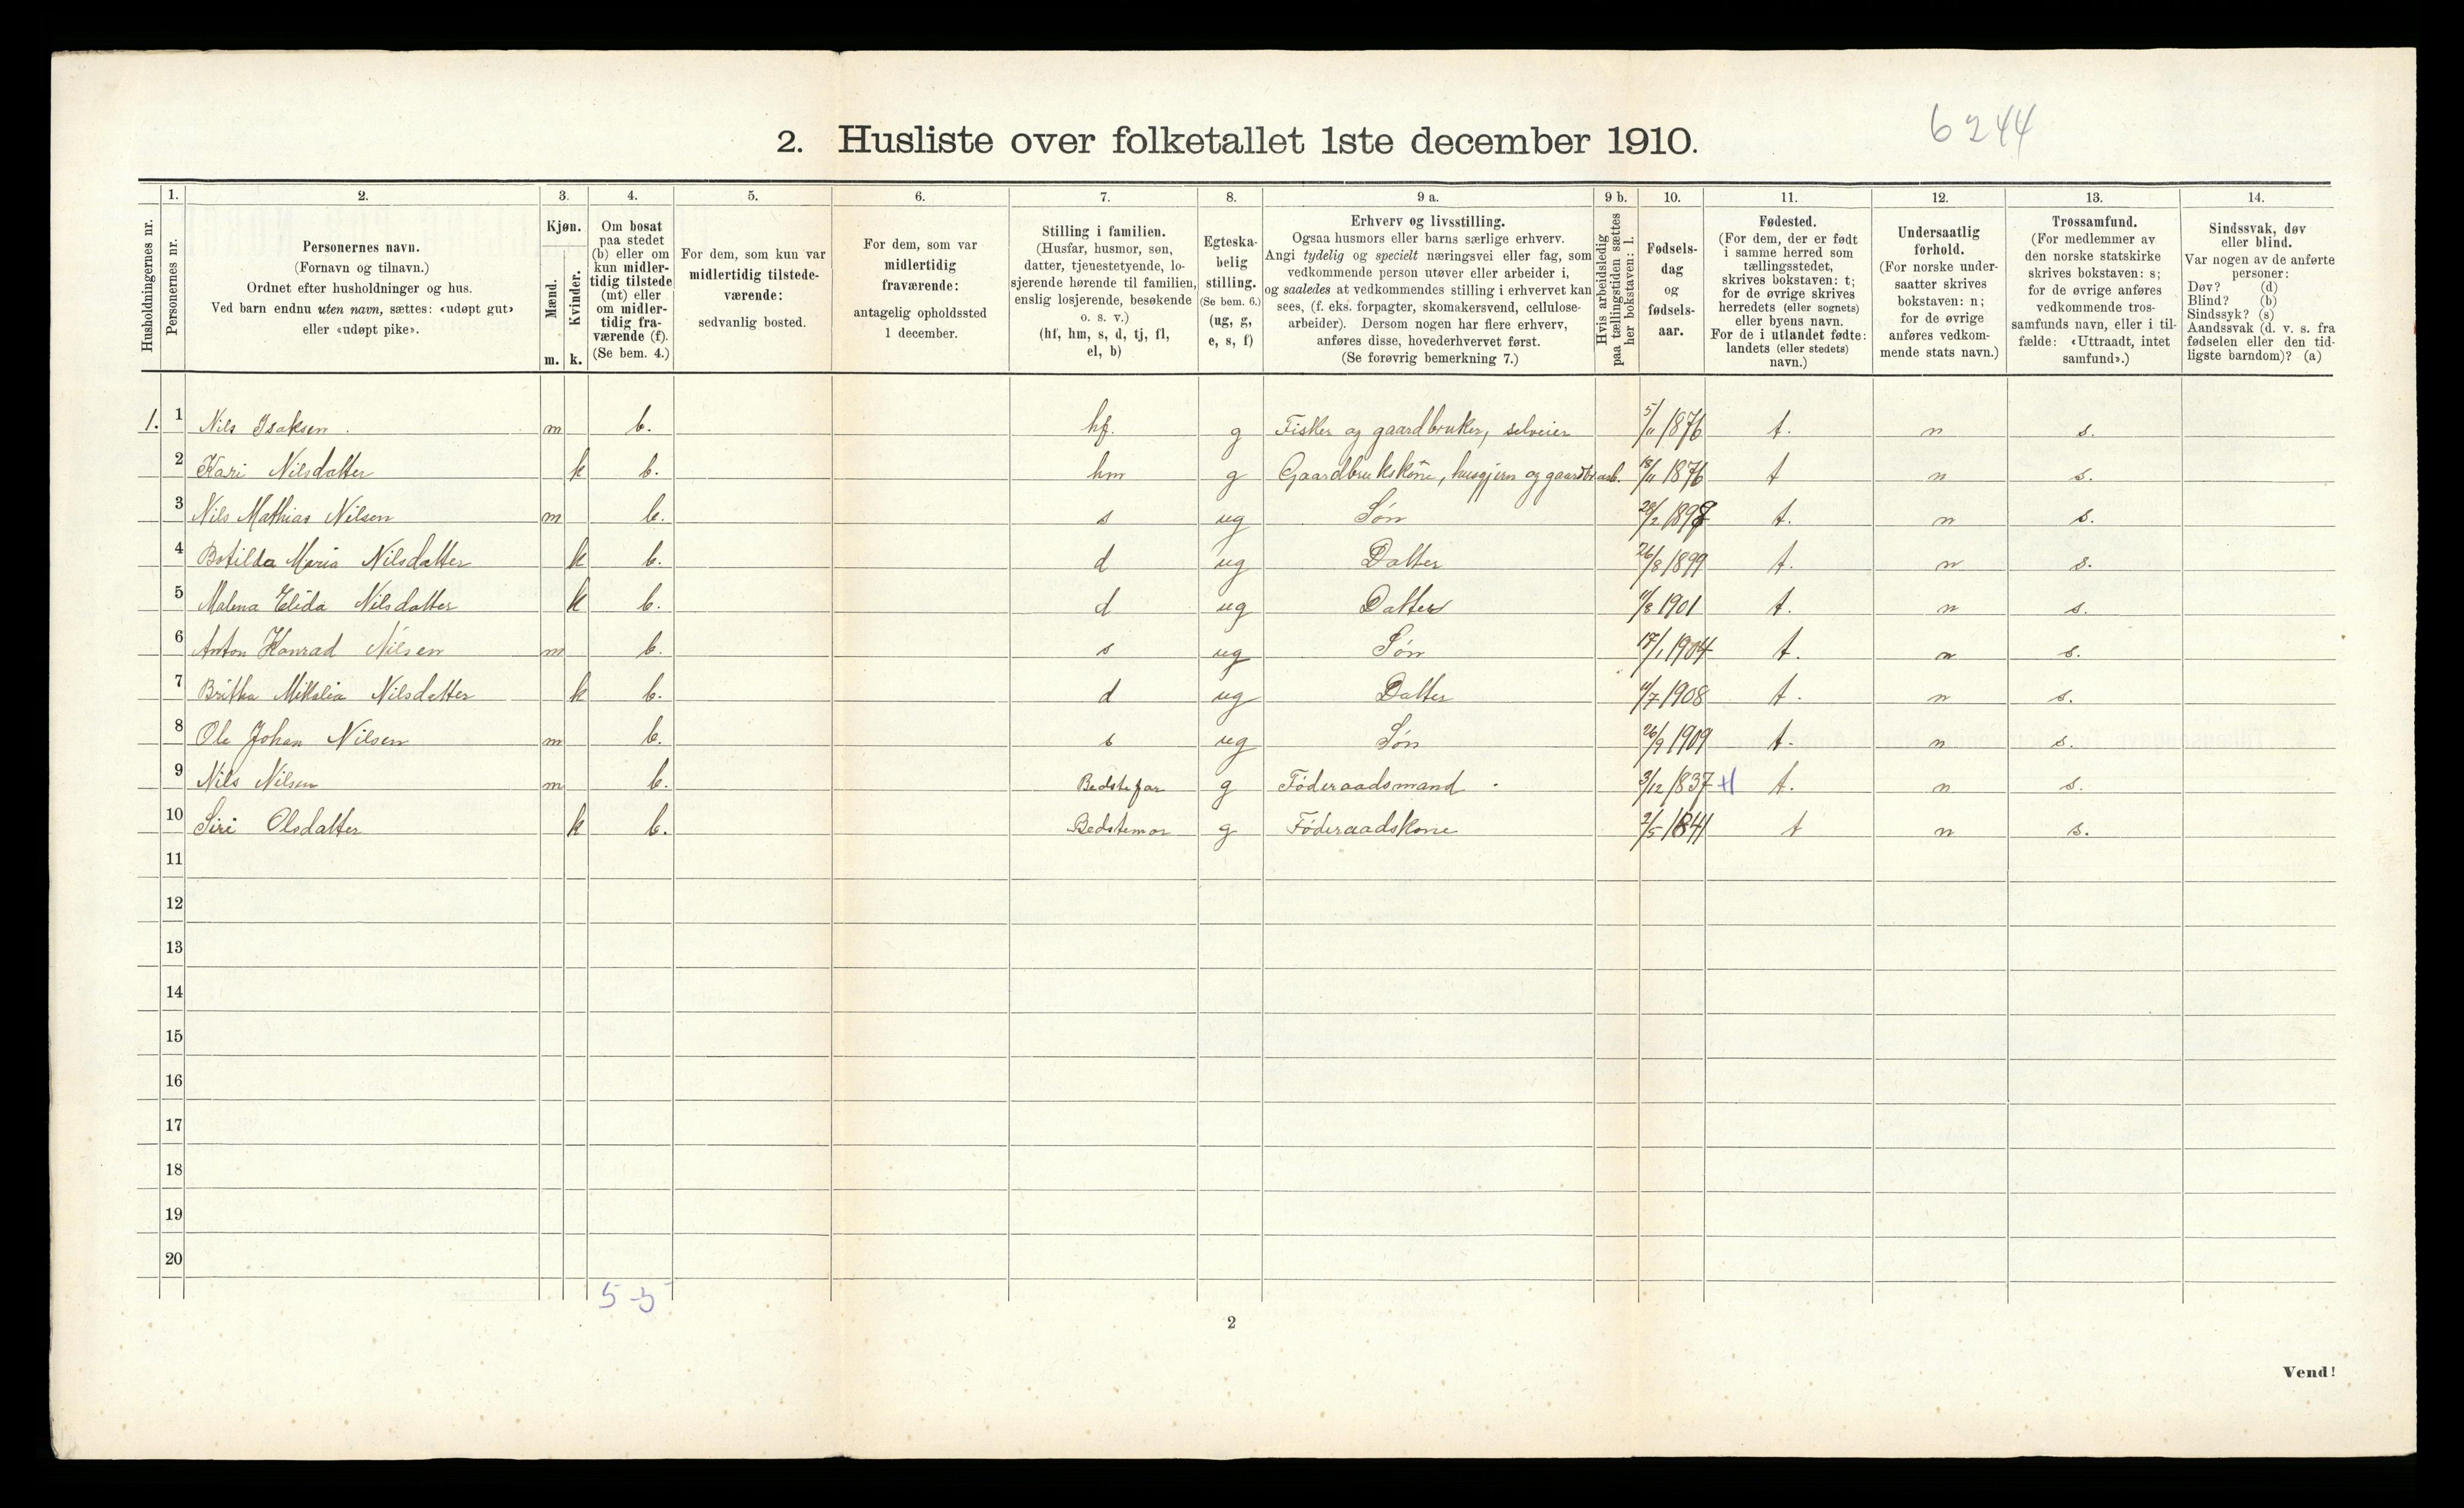 6244
2. Husliste over folketallet 1ste december 1910.
Husholdningernes nr.
1.
Personernes nr.
2.
Personernes navn.
(Fornavn og tilnavn.)
Ordnet efter husholdninger og hus.
Ved barn endnu uten navn, sættes: «udøpt gut»
eller «udøpt pike».
3.
Kjøn.
Mænd.
Kvinder.
m. k.
4.
Om bosat
paa stedet
(b) eller om
kun midler-
tidig tilstede
(mt) eller
om midler-
tidig fra-
værende (f).
(Se bem. 4.)
5.
For dem, som kun var
midlertidig tilstede-
værende:
sedvanlig bosted.
6.
For dem, som var
midlertidig
fraværende:
antagelig opholdssted
1 december.
7.
Stilling i familien.
(Husfar, husmor, søn,
datter, tjenestetyende, lo-
sjerende hørende til familien,
enslig losjerende, besøkende
o. s. v.)
(hf, hm, s, d, tj, fl,
el, b)
8.
Egteska-
belig
stilling.
(Se bem. 6.)
(ug, g,
e, s, f)
9 a.
Erhverv og livsstilling.
Ogsaa husmors eller barns særlige erhverv.
Angi tydelig og specielt næringsvei eller fag, som
vedkommende person utøver eller arbeider i,
og saaledes at vedkommendes stilling i erhvervet kan
sees, (f. eks. forpagter, skomakersvend, cellulose-
arbeider). Dersom nogen har flere erhverv,
anføres disse, hovederhvervet først.
(Se forøvrig bemerkning 7.)
9 b.
Hvis arbeidsledig
paa tællingstiden sættes
her bokstaven: l.
10.
Fødsels-
dag
og
fødsels-
aar.
11.
Fødested.
(For dem, der er født
i samme herred som
tællingsstedet,
skrives bokstaven: t;
for de øvrige skrives
herredets (eller sognets)
eller byens navn.
For de i utlandet fødte:
landets (eller stedets)
navn.)
12.
Undersaatlig
forhold.
(For norske under-
saatter skrives
bokstaven: n;
for de øvrige
anføres vedkom-
mende stats navn.)
13.
Trossamfund.
(For medlemmer av
den norske statskirke
skrives bokstaven: s;
for de øvrige anføres
vedkommende tros-
samfunds navn, eller i til-
fælde: «Uttraadt, intet
samfund».)
14.
Sindssvak, døv
eller blind.
Var nogen av de anførte
personer:
Døv? (d)
Blind? (b)
Sindssyk? (s)
Aandssvak (d. v. s. fra
fødselen eller den tid-
ligste barndom)? (a)
1. 1 Nils Isaksen. m b. hf. g Fisker og gaardbruker, selveier 5/11 1876 t. n s.
2 Kari Nilsdatter k b. hm g Gaardbrukskone, husgjern og gaardsarb. 18/11 1876 t n s.
3 Nils Mathias Nilsen m b. s ug Søn 28/2 1898 t. n s.
4 Botilda Maria Nilsdatter k b. d ug Datter 26/8 1899 t. n s.
5 Malena Elida Nilsdatter k b. d ug Datter 11/8 1901 t. n s.
6 Anton Konrad Nilsen m b. s ug Søn 17/1 1904 t. n s.
7 Britha Mikalia Nilsdatter k b. d ug Datter 11/7 1908 t. n s.
8 Ole Johan Nilsen m b. s ug Søn 26/9 1909 t. n s.
9 Nils Nilsen m b. Bedstefar g Føderaadsmand 3/12 1837 t. n s.
10 Siri Olsdatter k b. Bedstemor g Føderaadskone 2/5 1841 t n s.
11
12
13
14
15
16
17
18
19
20
5-5
2
Vend!